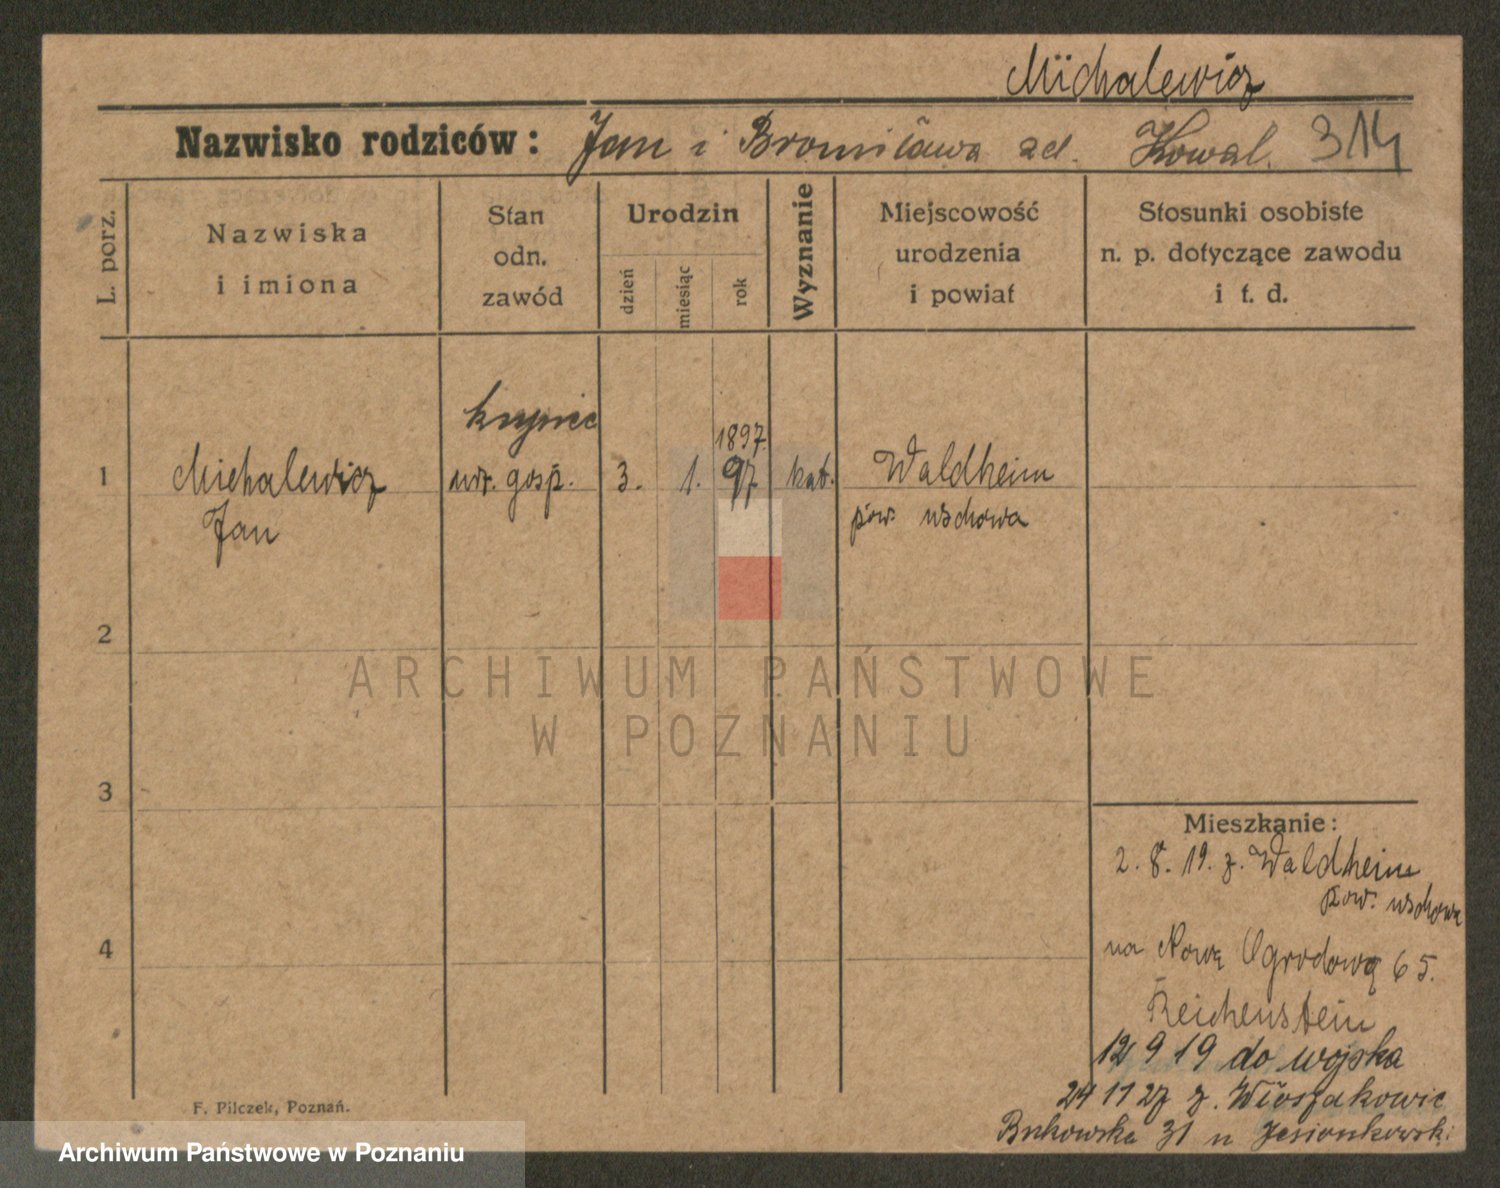 Michalewicz
Nazwisko rodziców: Jan i Bronisława zd. Kowal. 314
L. porz.
Nazwiska
i imiona
Stan
odn.
zawód
Urodzin
dzień
miesiąc
rok
Wyznanie
Miejscowość
urodzenia
i powiat
Stosunki osobiste
n. p. dotyczące zawodu
i t. d.
1
Michalewicz
Jan
kupiec
urz. gosp.
3.
1.
1897.
97
kat.
Waldheim
pow. Wschowa
2
ARCHIWUM PAŃSTWOWE
W POZNANIU
3
4
Mieszkanie:
2. 8. 19. z. Waldheim
pow. Wschowa
na Nową Ogrodową 65.
Reichenstein
12 9 19 do wojska
24 11 27 z. Włoszakowic
Bukowska 31 u Jesionkowski
F. Pilczek, Poznań.
Archiwum Państwowe w Poznaniu